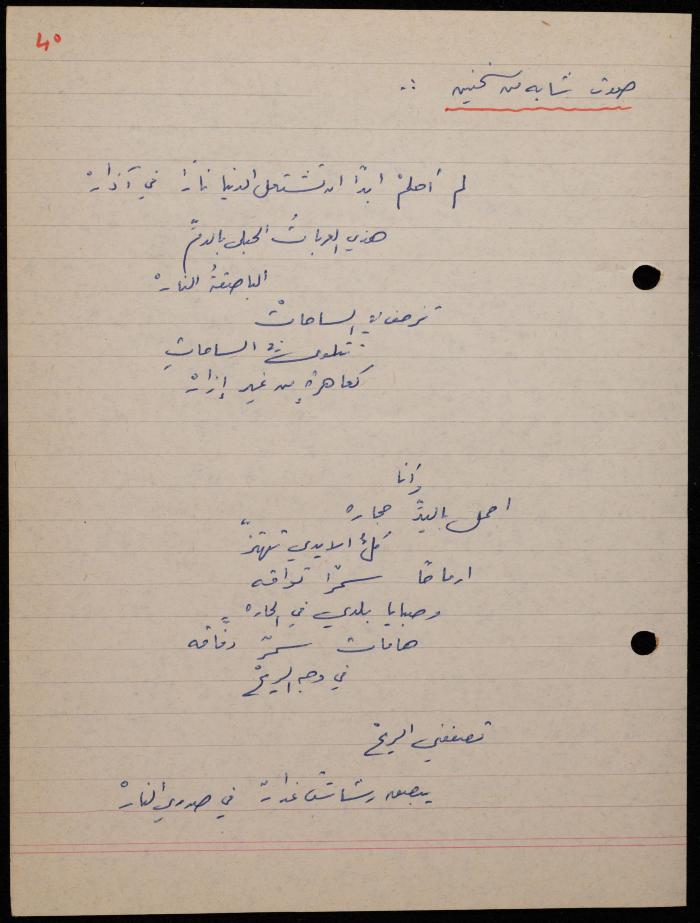 ٤٥
صوت شابه من سخنين :
لم أحلمْ ابدًا ان تشتعل الدنيا نارًا في آذارْ
هذي العرباتُ الحبلى بالدمِّ
الباصقةُ النارْ
تزحف في الساحاتْ
تتلوى في الساحاتِ
كعاهرةٍ من غير إزارْ
وأنا
احمل باليدِّ حجاره
كلُّ الايدي تهتزّ
ارماحًا سمرًا تواقه
وصبايا بلدي في الحاره
هامات سمرّ دفّاقه
في وجه الريحْ
تصفعني الريحْ
يبصق رشاش غدارْ في صدري النارْ